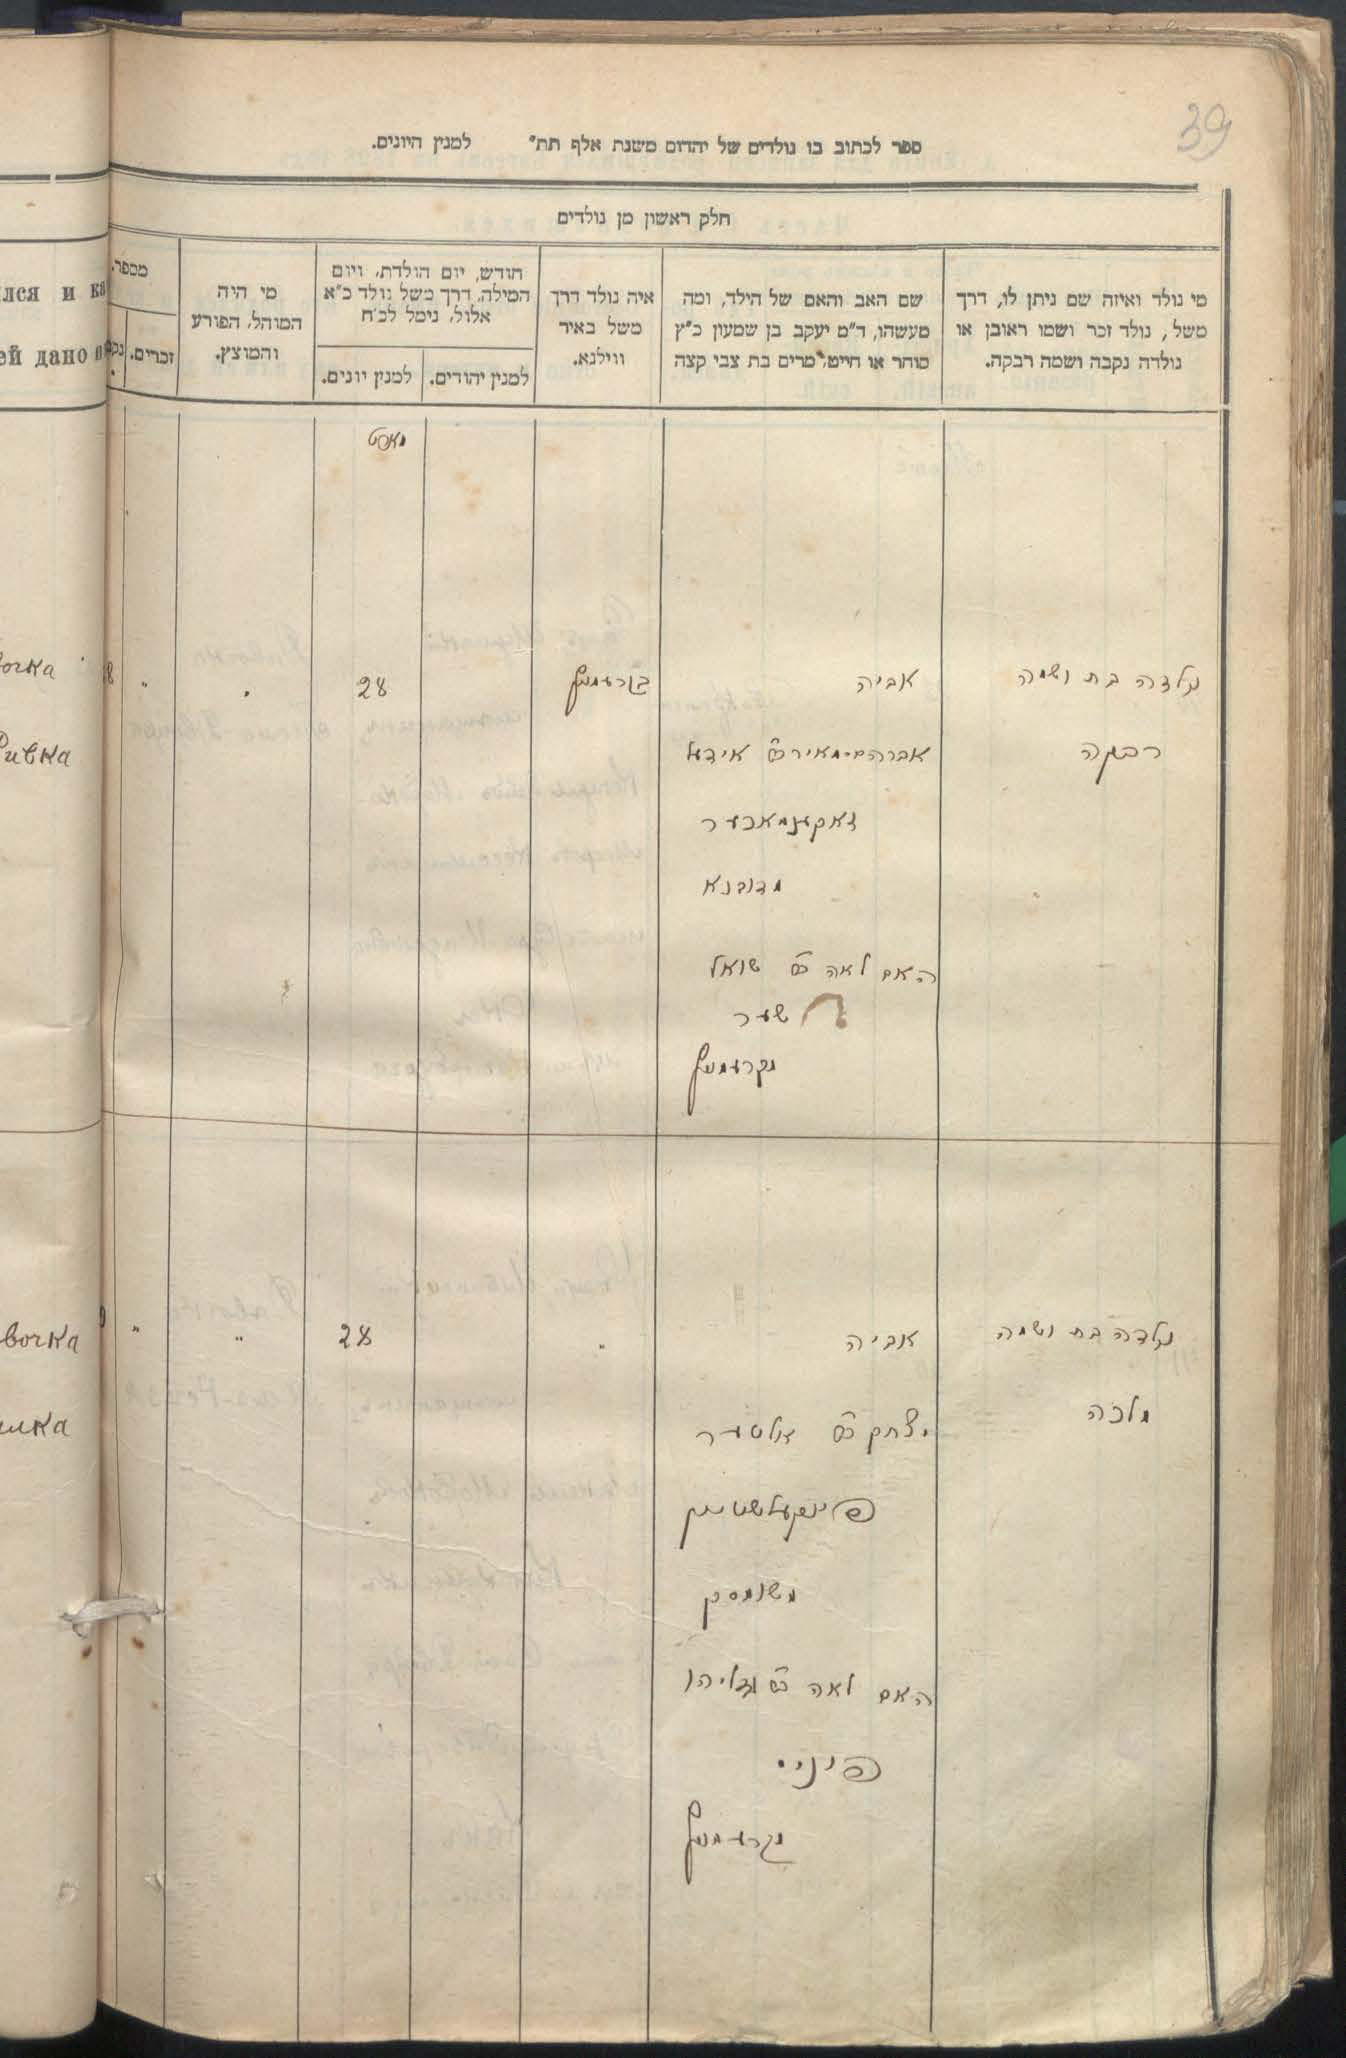 39
ספר לכתוב בו נולדים של יהדום משנת אלף תת״ למנין היונים.
חלק ראשון מן נולדים
מי נולד ואיזה שם ניתן לו, דרך
משל, נולד זכר ושמו ראובן או
נולדה נקבה ושמה רבקה.
שם האב והאם של הילד, ומה
מעשהו, ד״מ יעקב בן שמעון כ״ץ
סוחר או חייט, מרים בת צבי קצה
איה נולד דרך
משל באיר
ווילנא.
חודש, יום הולדת, ויום
המילה, דרך משל נולד כ״א
אלול, נימל לכ״ח
למנין יהודים.
למנין יונים.
מי היה
המוהל, הפורע
והמוצץ.
מספר.
זכרים.
лся и ка
ей дано и
מאסט
נולדה בת ושמה
רבקה
אביה
אברהם-מאיר ב״ר אידל
מדובנא
האם לאה ב״ר שואל
שער
28
"
"
8
вочка
Ривка
נולדה בת ושמה
מלכה
אביה
יצחק ב״ר אלטער
פינקעלשטיין
משומסק
האם לאה ב״ר גדליהו
"
28
"
"
вочка
лка